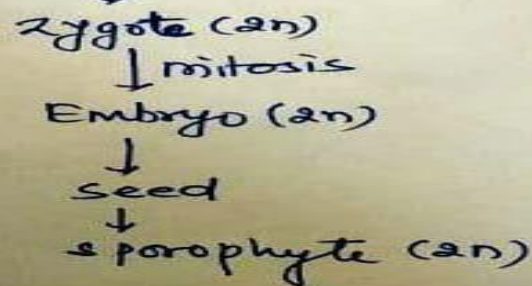 Zygote (2n)
↓ mitosis
Embryo (2n)
↓
seed
↓
sporophyte (2n)